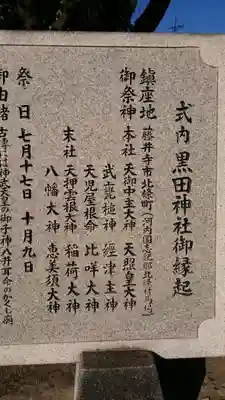 式内 黒田神社御縁起
鎮座地 藤井寺市北條町(河内国志紀郡北條村馬場)
御祭神 本社 天御中主大神 天照皇大神
武甕槌神 經津主神
天児屋根命 比咩大神
末社 天押雲根大神 稲荷大神
八幡大神 恵美須大神
祭日 七月十七日 十月九日
御由緒 古
神武天皇の御子神八井耳命のかくし廟